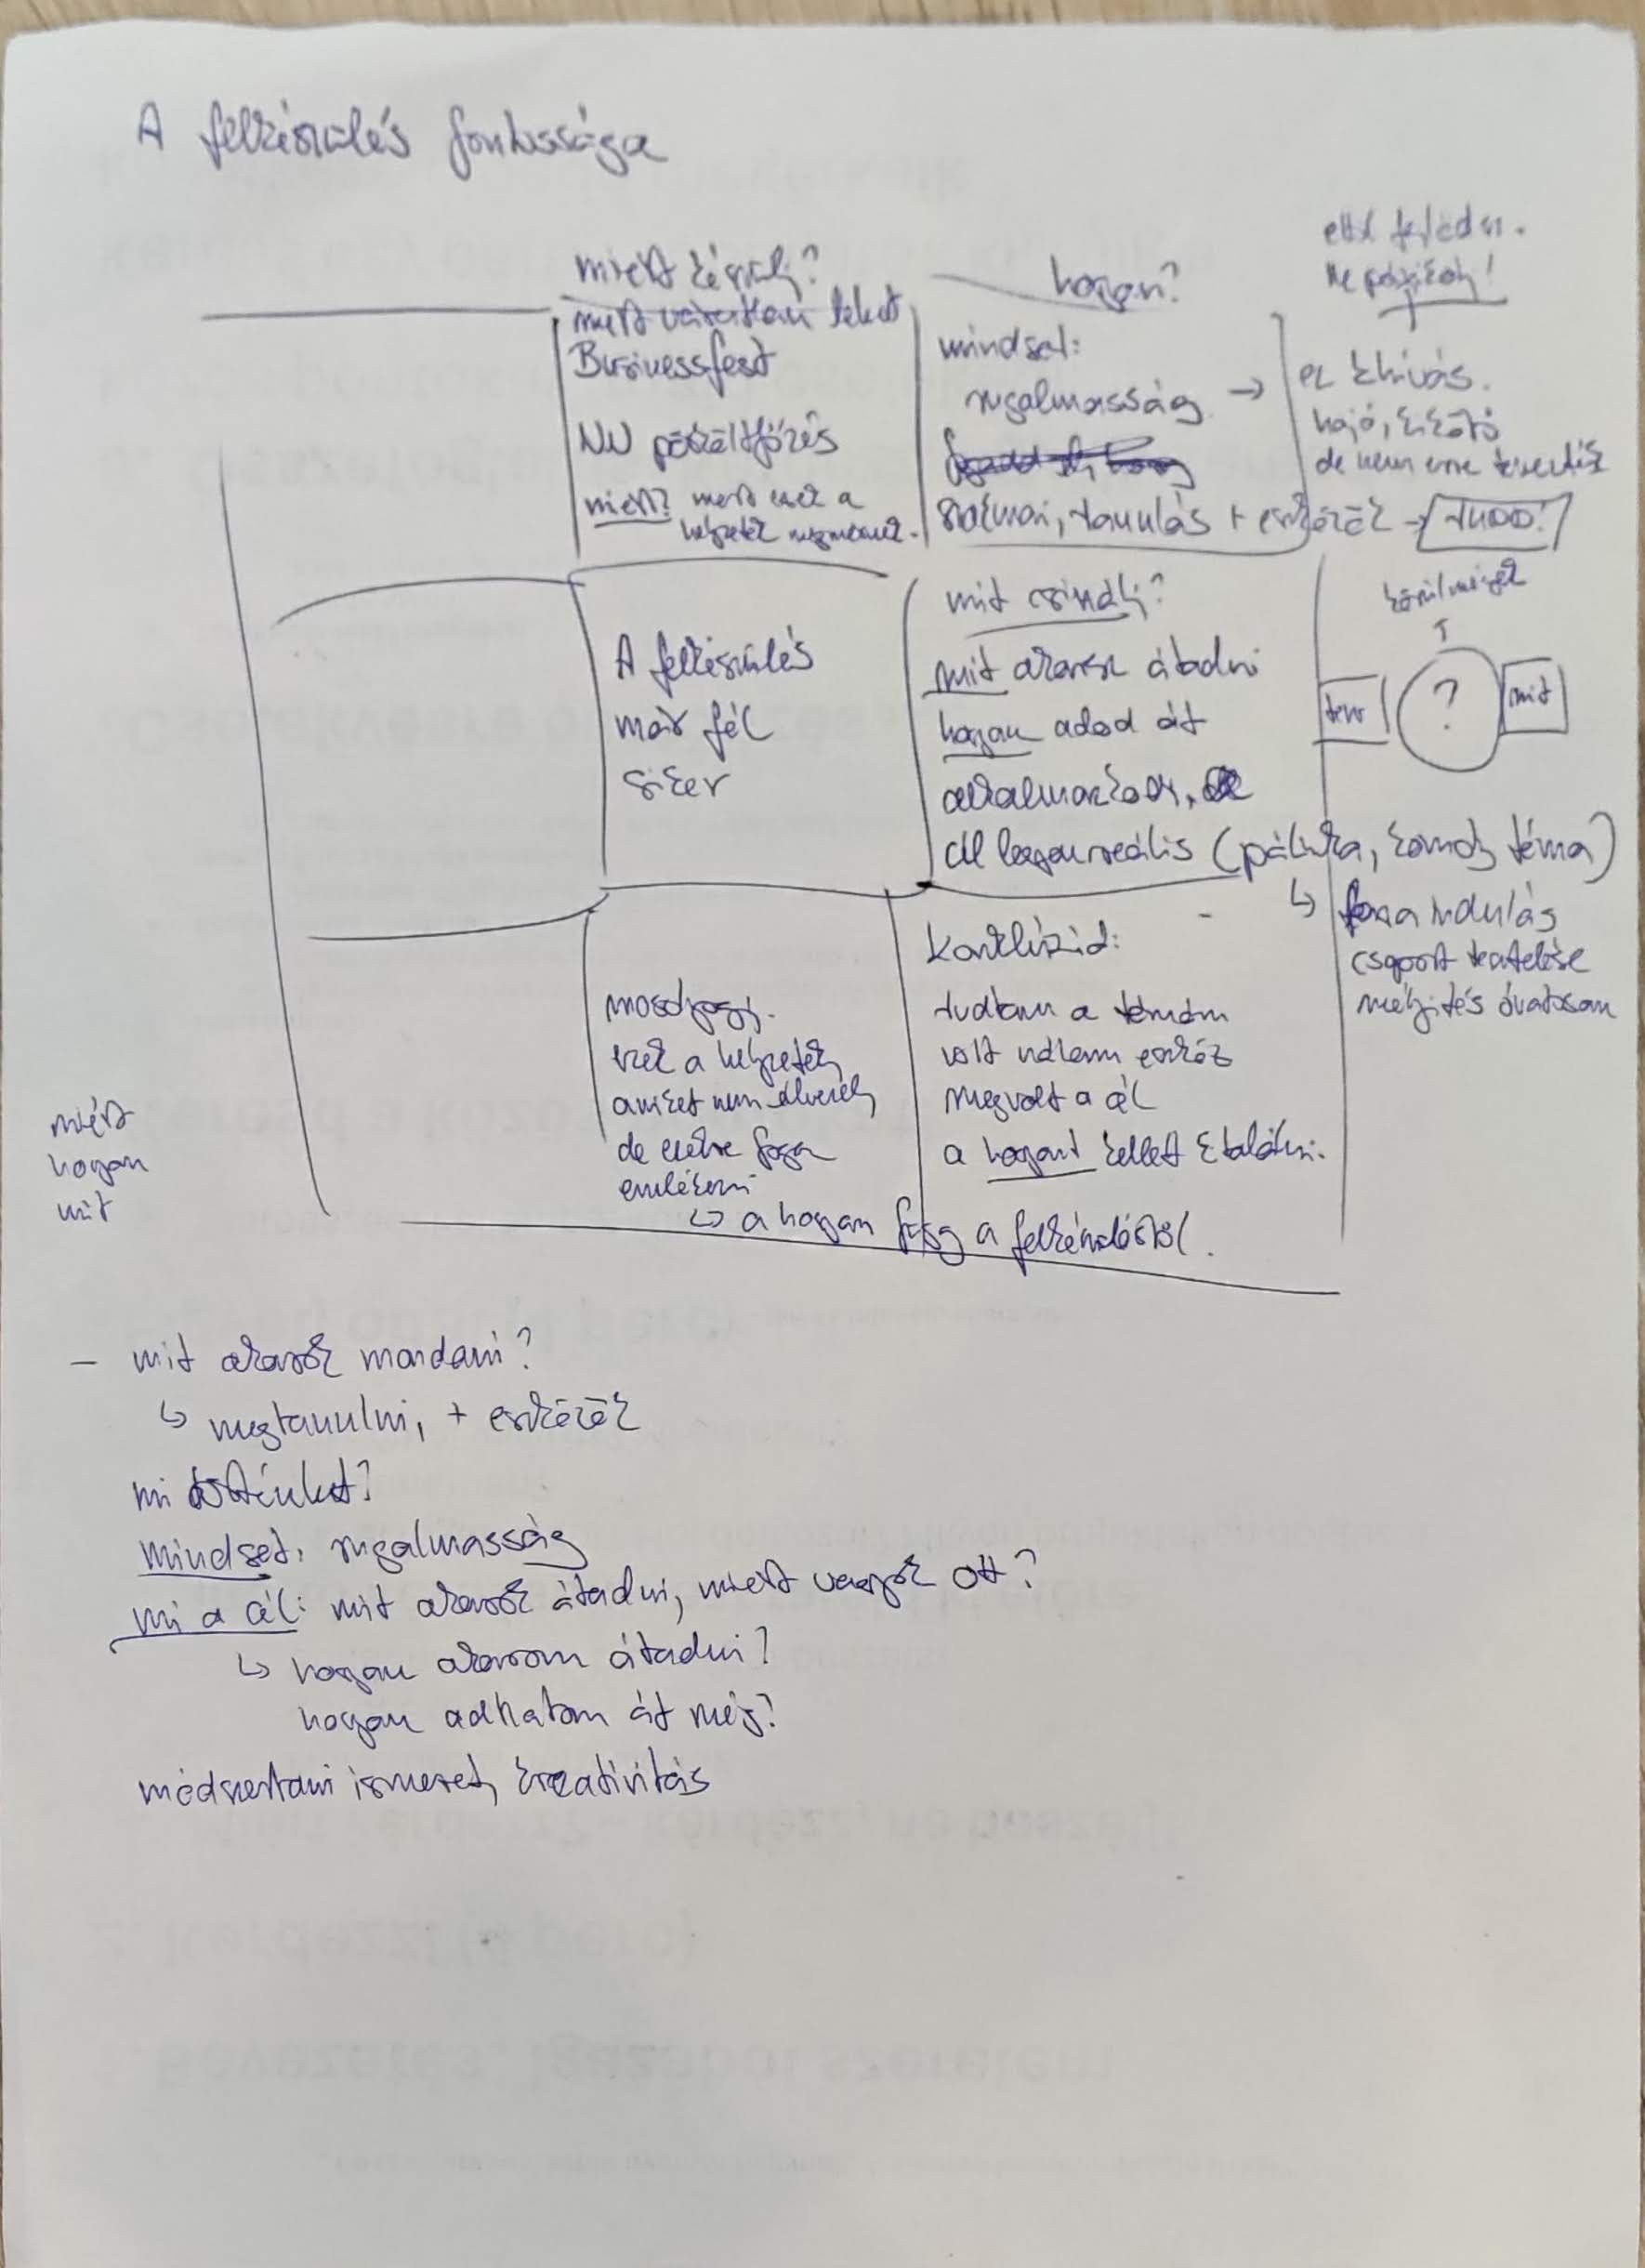 A felkészülés fontossága
miért készülj?
mert váratlan lehet
Businessfest
NU pótkáltfőzés
miért? mert ezek a
helyzetek megmennek.
hogyan?
mindset:
rugalmasság →
szakmai, tanulás + eszközök → TUDD!
ettől fejlődsz.
Ne pánikolj!
ez kihívás.
hajó, kikötő
de nem erre tervezték
A felkészülés
már fél
siker
mit csinálj?
mit akarsz átadni
hogyan adod át
alkalmazkodj,
cél legyen reális (pálinka, komoly téma)
körülmények
terv
?
mit
↳ fára indulás
csoport terelése
mélyítés óvatosan
mosolyogj.
ezek a helyzetek,
amiket nem élvezel,
de ezekre fogsz
emlékezni
↳ a hogyan függ a felkészüléstől.
Konklúzió:
tudtam a témám
volt nálam eszköz
megvolt a cél
a hogyant kellett kitalálni.
miért
hogyan
mit
- mit akarok mondani?
↳ megtanulni, + eszközök
mi történhet?
mindset: rugalmasság
mi a cél: mit akarok átadni, miért vagyok ott?
↳ hogyan akarom átadni?
hogyan adhatom át még?
módszertani ismeret, kreativitás